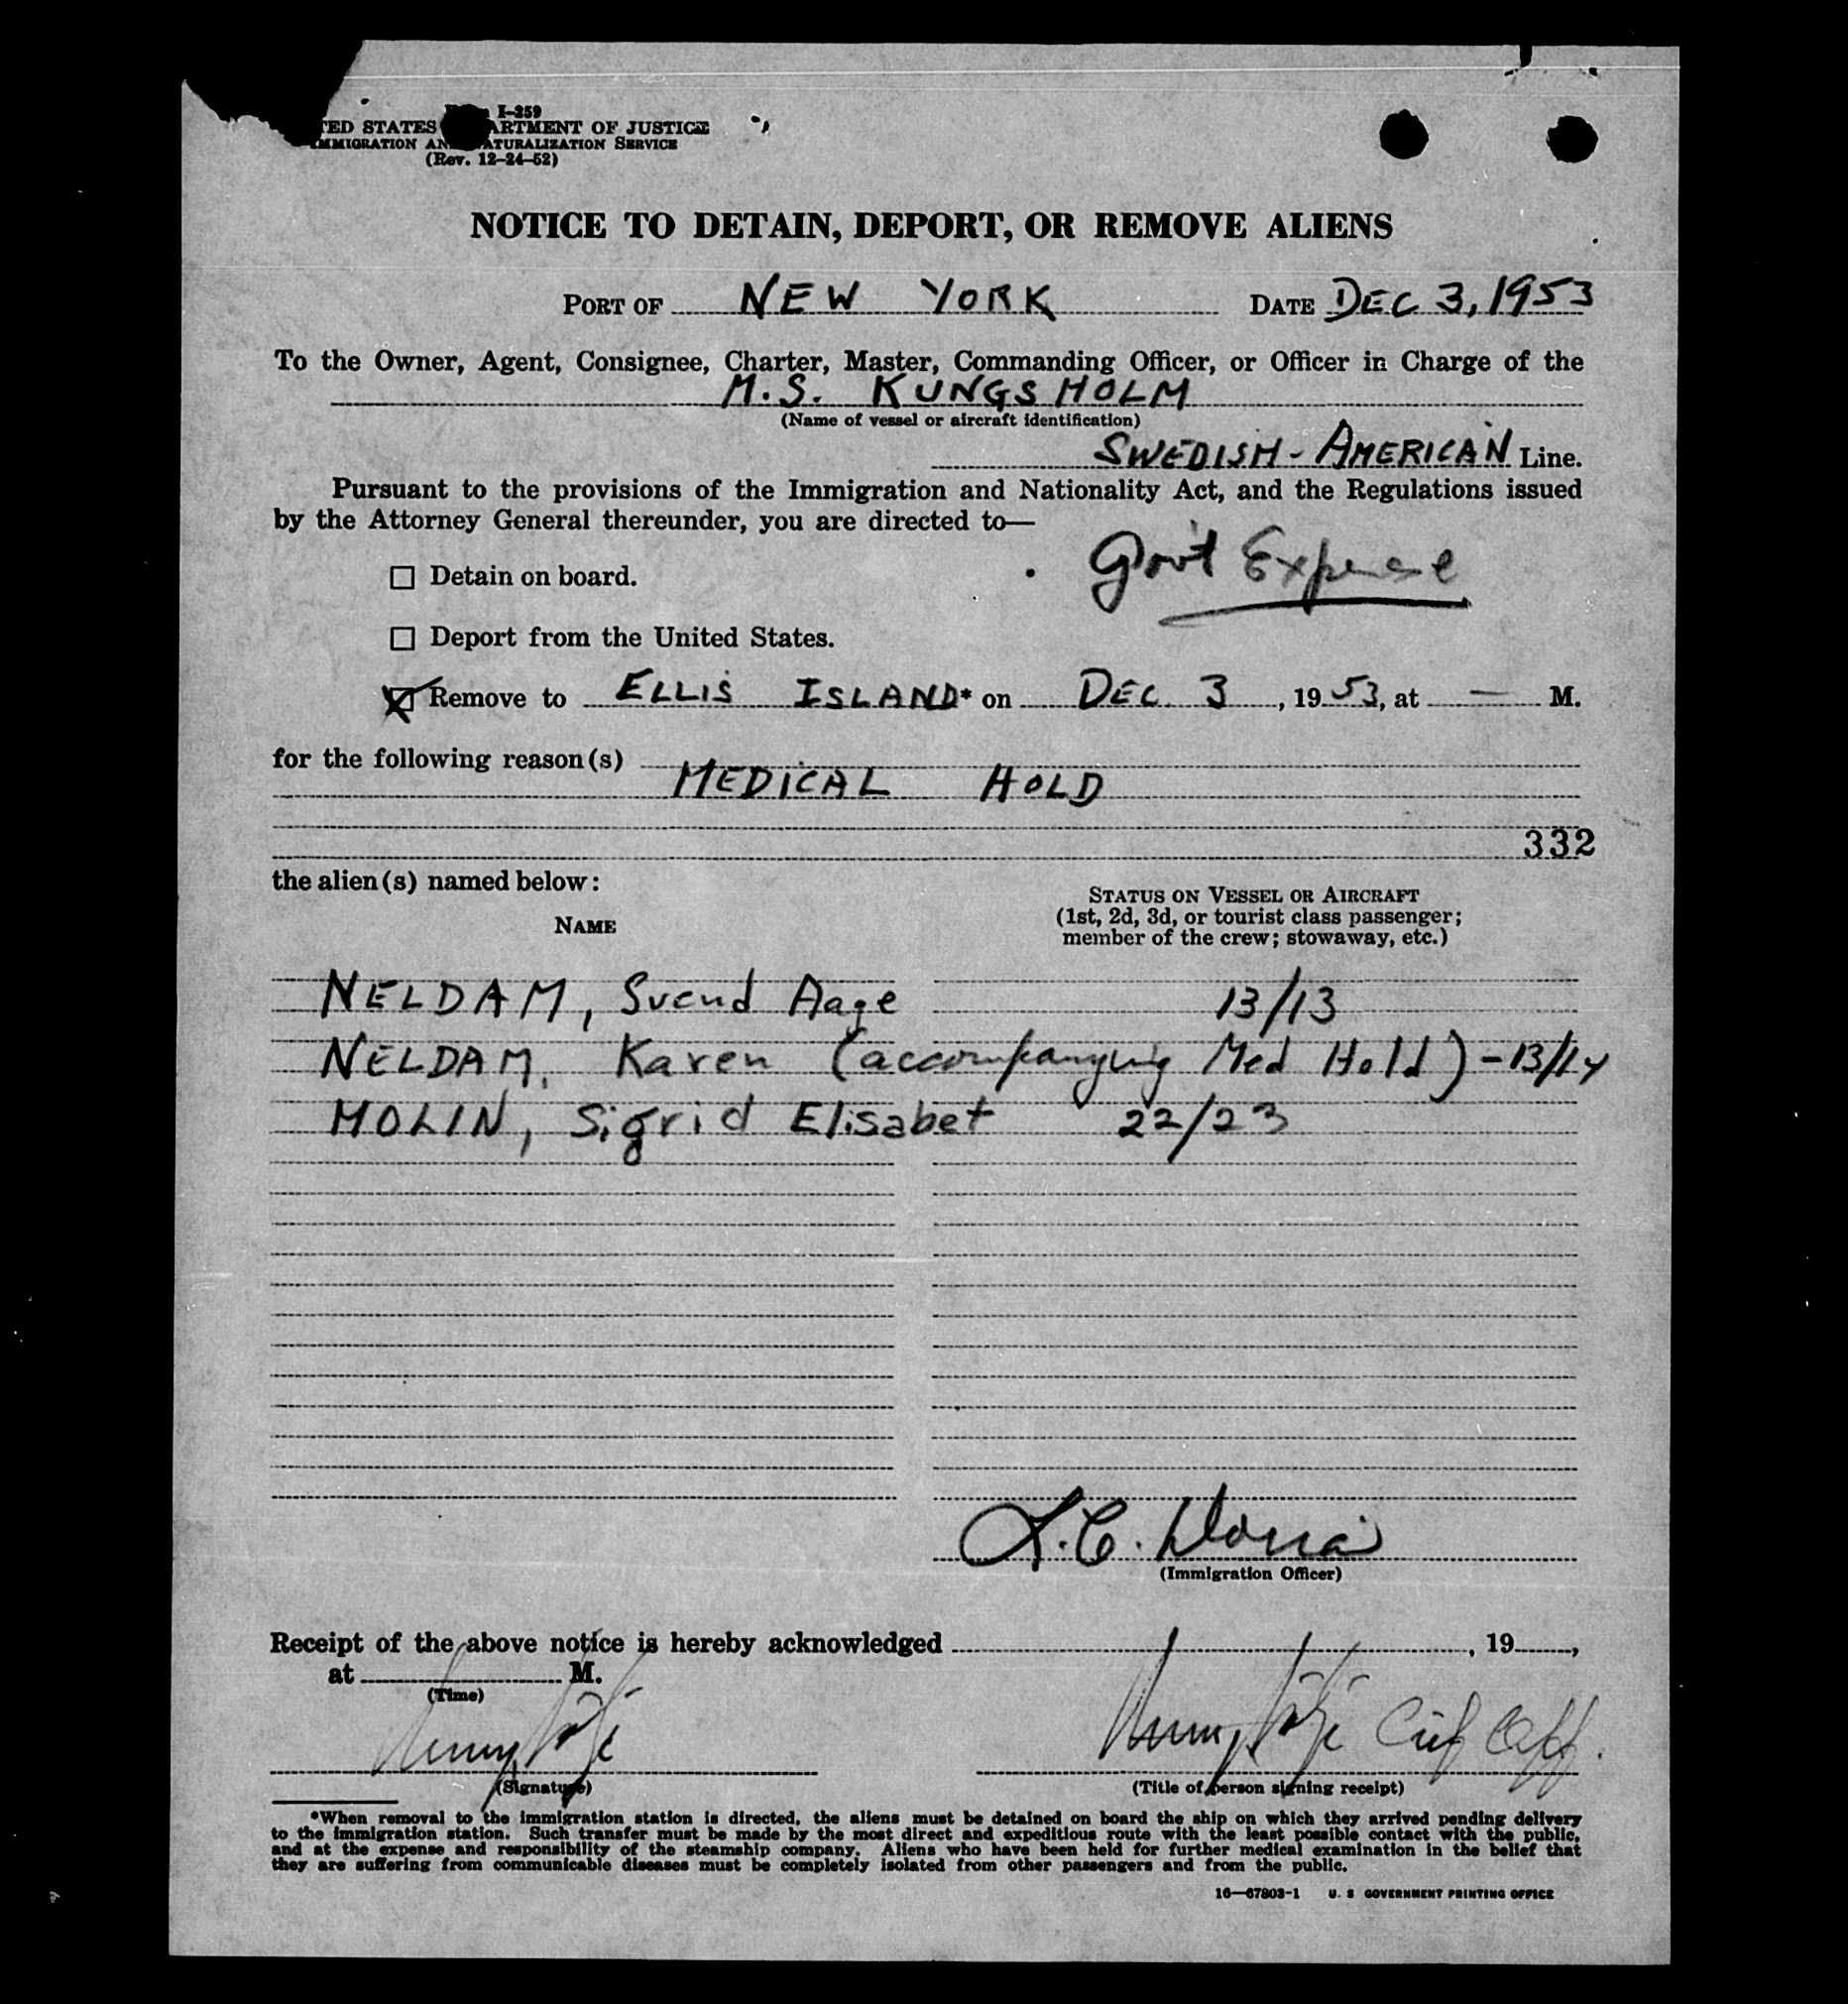 I-259
TED STATES ARTMENT OF JUSTICE
IMMIGRATION AN ATURALIZATION SERVICE
(Rev. 12-24-52)
NOTICE TO DETAIN, DEPORT, OR REMOVE ALIENS
PORT OF NEW YORK DATE DEC 3, 1953
To the Owner, Agent, Consignee, Charter, Master, Commanding Officer, or Officer in Charge of the
M.S. KUNGSHOLM
(Name of vessel or aircraft identification)
SWEDISH-AMERICAN Line.
Pursuant to the provisions of the Immigration and Nationality Act, and the Regulations issued
by the Attorney General thereunder, you are directed to—
Gov't Expense
☐ Detain on board.
☐ Deport from the United States.
☒ Remove to ELLIS ISLAND* on DEC. 3, 1953, at — M.
for the following reason(s)
MEDICAL HOLD
332
the alien(s) named below:
NAME
STATUS ON VESSEL OR AIRCRAFT
(1st, 2d, 3d, or tourist class passenger;
member of the crew; stowaway, etc.)
NELDAM, Svend Aage 13/13
NELDAM, Karen (accompanying Med Hold) - 13/14
MOLIN, Sigrid Elisabet 22/23
(Immigration Officer)
Receipt of the above notice is hereby acknowledged , 19 ,
at M.
(Time)
Off.
(Signature) (Title of person signing receipt)
*When removal to the immigration station is directed, the aliens must be detained on board the ship on which they arrived pending delivery
to the immigration station. Such transfer must be made by the most direct and expeditious route with the least possible contact with the public,
and at the expense and responsibility of the steamship company. Aliens who have been held for further medical examination in the belief that
they are suffering from communicable diseases must be completely isolated from other passengers and from the public.
16—67803-1 U. S GOVERNMENT PRINTING OFFICE